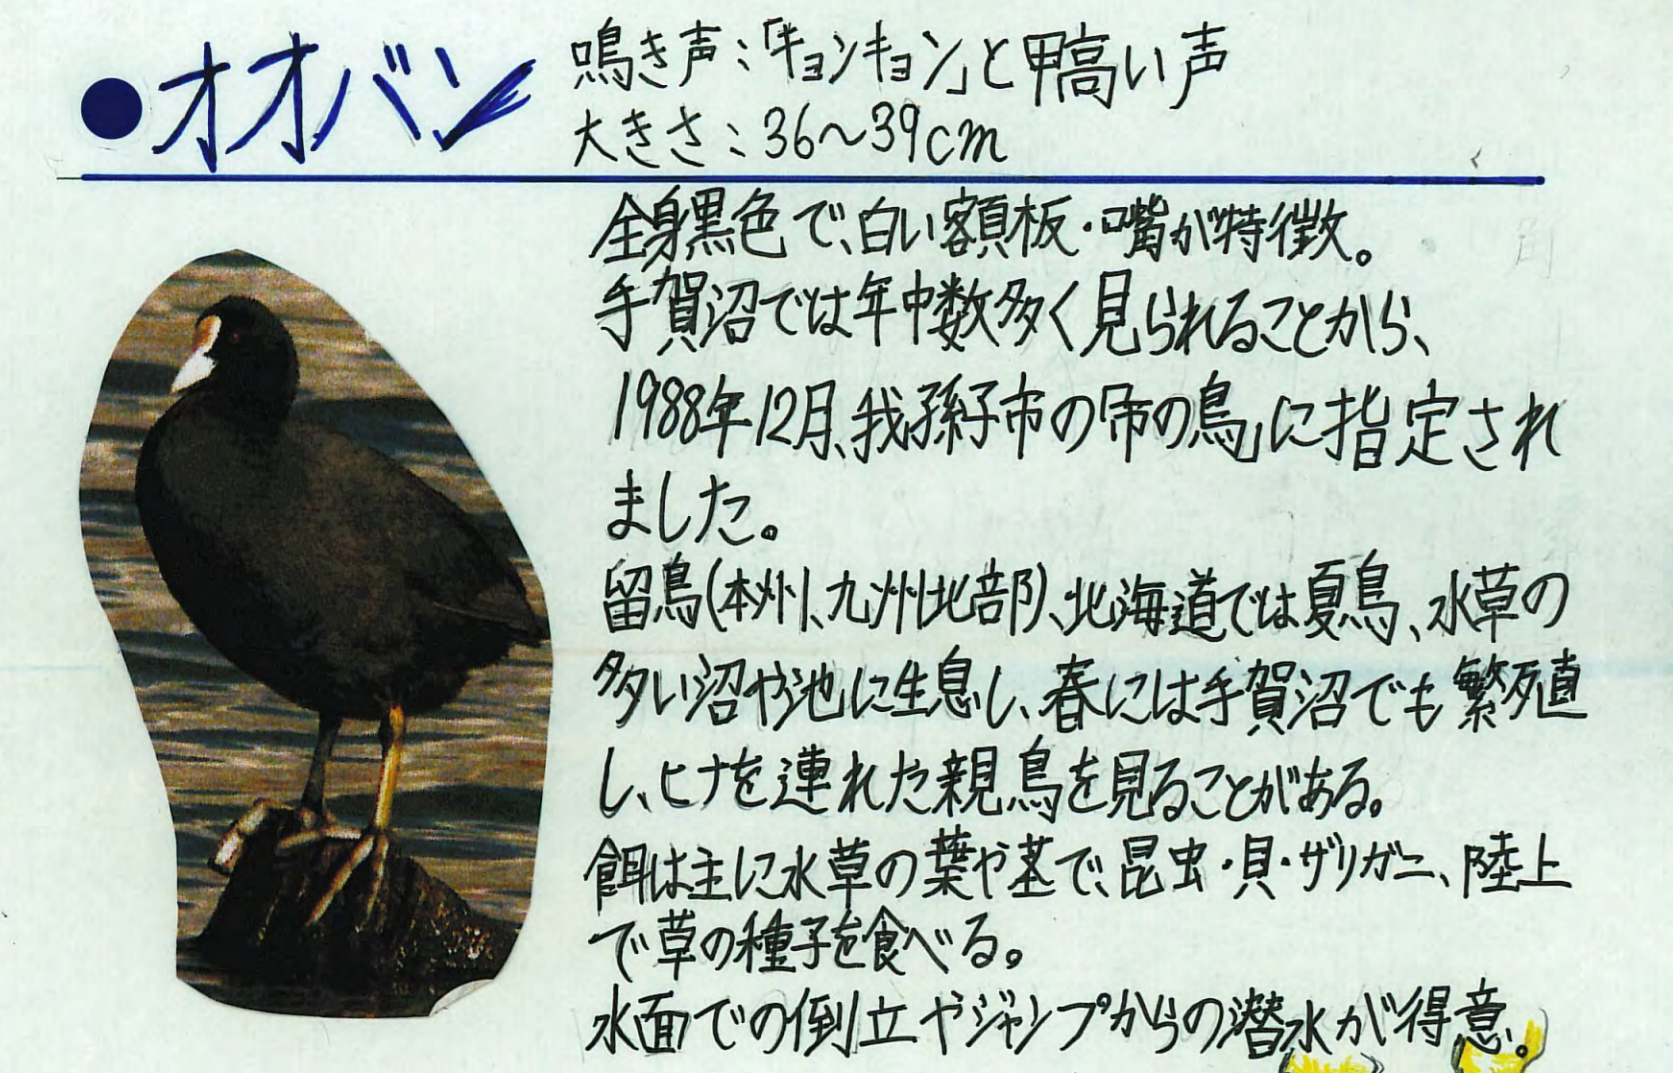 ●オオバン
鳴き声:「キョンキョン」と甲高い声
大きさ:36~39cm
全身黒色で、白い額板・嘴が特徴。
手賀沼では年中数多く見られることから、
1988年12月、我孫子市の「市の鳥」に指定され
ました。
留鳥(本州、九州北部)、北海道では夏鳥、水草の
多い沼や池に生息し、春には手賀沼でも繁殖
し、ヒナを連れた親鳥を見ることがある。
餌は主に水草の葉や茎で、昆虫・貝・ザリガニ、陸上
で草の種子を食べる。
水面での倒立やジャンプからの潜水が得意。